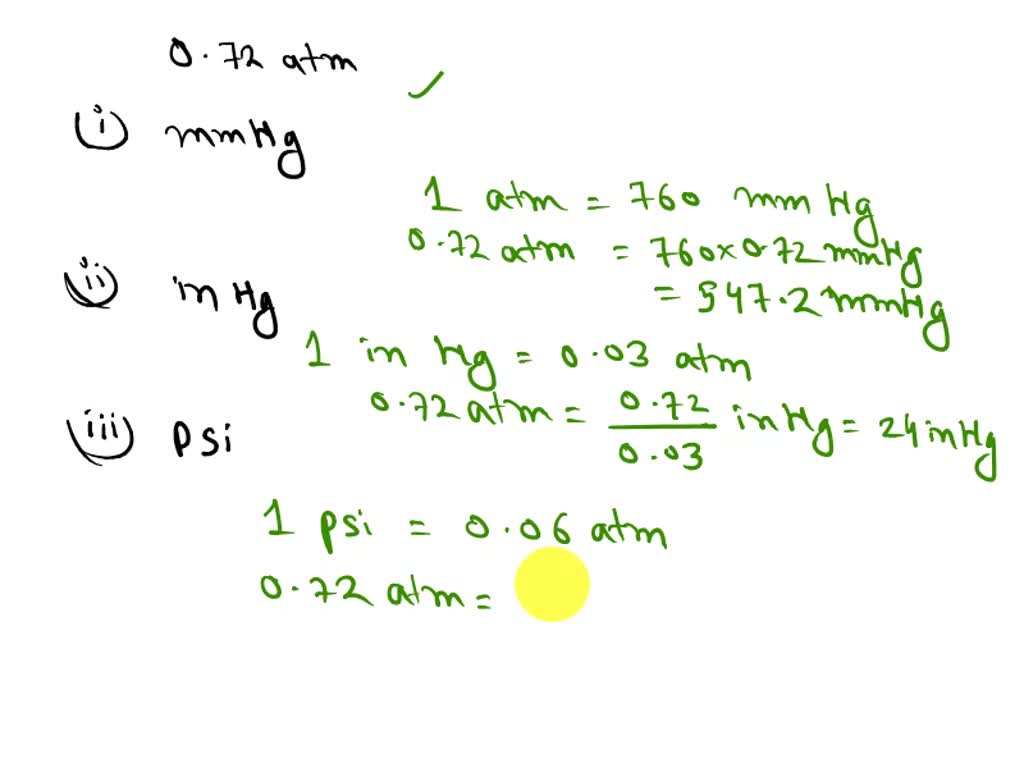 0.72 atm
(i) mmHg
1 atm = 760 mm Hg
0.72 atm = 760x0.72 mmHg
= 547.2 mmHg
(ii) in Hg
1 in Hg = 0.03 atm
0.72 atm = 0.72/0.03 in Hg = 24 in Hg
(iii) psi
1 psi = 0.06 atm
0.72 atm =